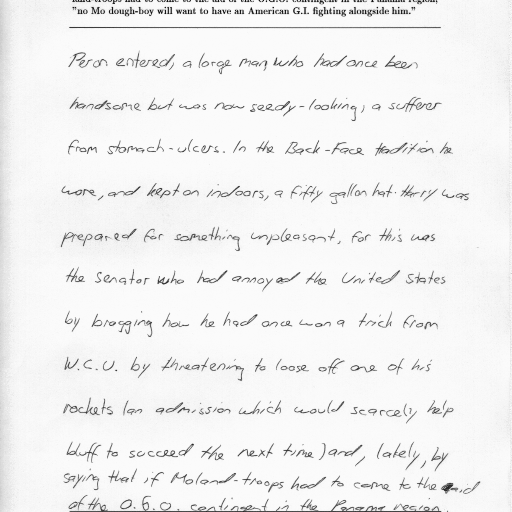 land-troops had to come to the aid of the O.G.O. contingent in the Panama region,
"no Mo dough-boy will want to have an American G.I. fighting alongside him."
Peron entered, a large man, who had once been
handsome but was now seedy-looking, a sufferer
from stomach-ulcers. In the Back-Face tradition he
wore, and kept on indoors, a fifty gallon hat. Harry was
prepared for something unpleasant, for this was
the Senator who had annoyed the United States
by bragging how he had once won a trick from
W.C.U. by threatening to loose off one of his
rockets (an admission which would scarcely help
bluff to succeed the next time) and, lately, by
saying that if Moland-troops had to come to the aid
of the O.G.O. contingent in the Panama region,